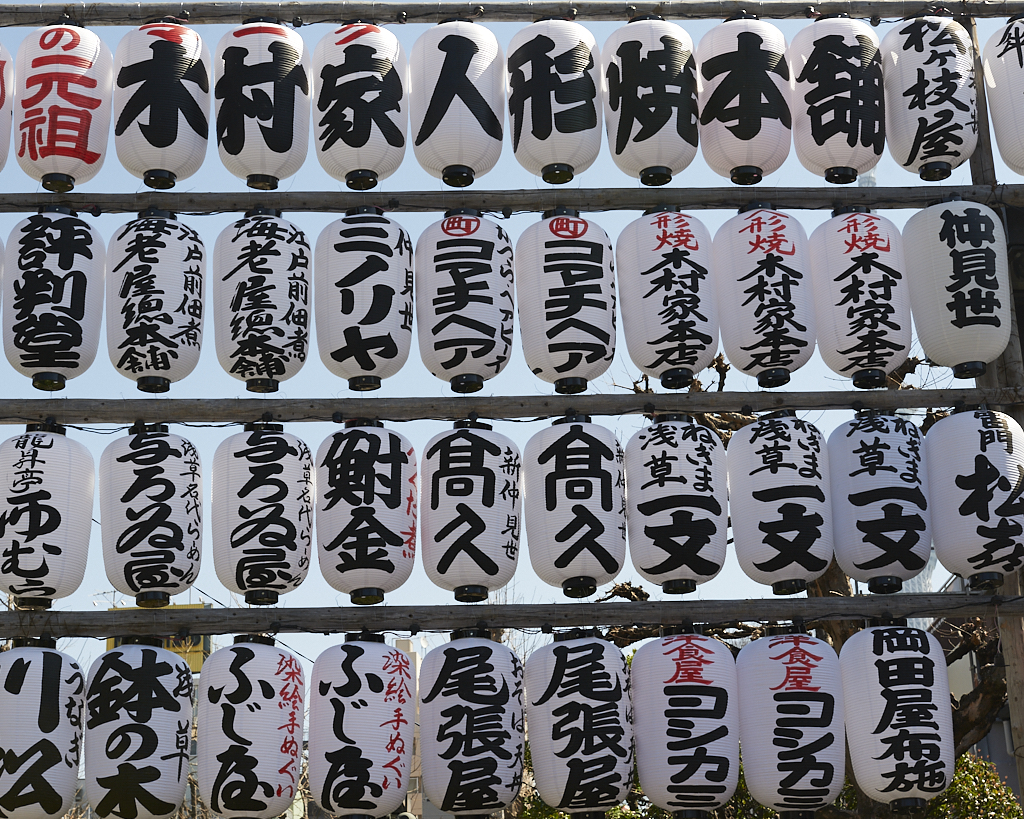 の元祖
木村家人形焼本舗
松ヶ枝屋
評判堂
江戸前佃煮
海老屋總本舗
江戸前佃煮
海老屋總本舗
仲見世
三ノリヤ
町
コマチヘア
町
コマチヘア
形焼
木村家本店
形焼
木村家本店
形焼
木村家本店
仲見世
龍昇亭
むら
浅草名代らーめん
与ろゐ屋
浅草名代らーめん
与ろゐ屋
つくだ煮
鮒金
新仲見世
髙久
新仲見世
髙久
ねぎま
浅草
一文
ねぎま
浅草
一文
ねぎま
浅草
一文
雷門
松喜
うなぎ
川松
浅草
鉢の木
染絵手ぬぐい
ふじ屋
染絵手ぬぐい
ふじ屋
尾張屋
尾張屋
食屋
ヨシカミ
食屋
ヨシカミ
岡田屋布施